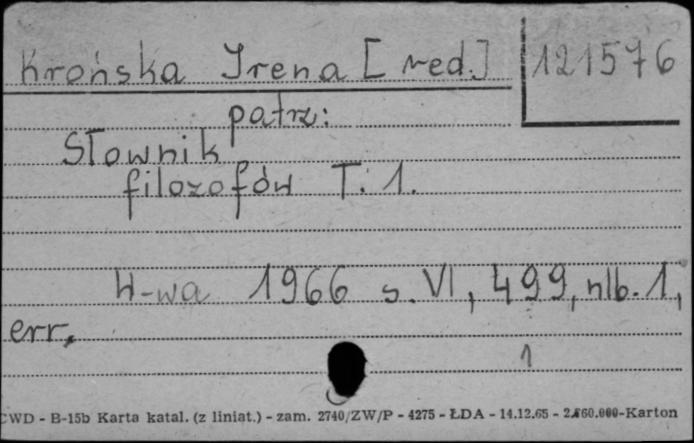 Krońska Irena [red.] 121576
patrz:
Słownik
filozofów T. 1.
W-wa 1966 s. VI, 499, nlb. 1,
err.
1
CWD - B-15b Karta katal. (z liniat.) - zam. 2740/ZW/P - 4275 - ŁDA - 14.12.65 - -Karton